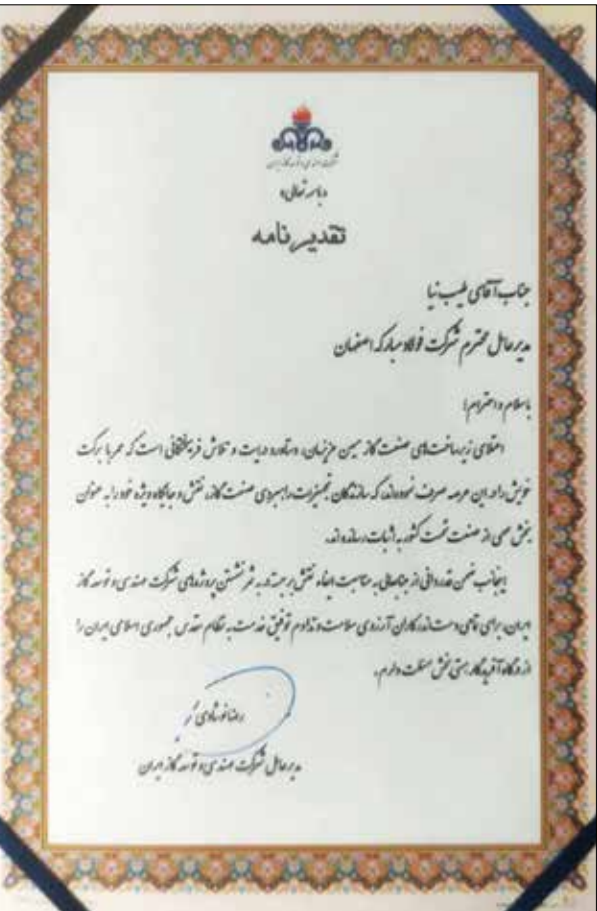 شرکت مهندسی و توسعه گاز ایران
«باسمه تعالی»
تقدیرنامه
جناب آقای طیب نیا
مدیرعامل محترم شرکت فولاد مبارکه اصفهان
باسلام و احترام؛
اعتلای زیرساخت‌های صنعت گاز میهن عزیزمان، دستاورد درایت و تلاش فرهیختگانی است که عمر با برکت
خویش را در این عرصه صرف نموده‌اند، که سازندگان تجهیزات راهبردی صنعت گاز، نقش و جایگاه ویژه خود را به عنوان
بخش مهمی از صنعت نفت کشور به اثبات رسانده‌اند.
اینجانب ضمن قدردانی از جنابعالی به مناسبت ایفاء نقش برجسته در به ثمر نشستن پروژه‌های شرکت مهندسی و توسعه گاز
ایران، برای تمامی دست‌اندرکاران آرزوی سلامت و تداوم توفیق خدمت به نظام مقدس جمهوری اسلامی ایران را
از درگاه آفریدگار هستی بخش مسئلت دارم.
رضا نوشادی
مدیرعامل شرکت مهندسی و توسعه گاز ایران